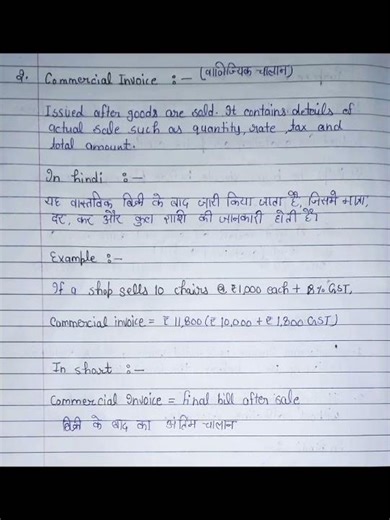 2. Commercial Invoice :- (वाणिज्यिक चालान)
Issued after goods are sold. It contains details of
actual sale such as quantity, rate, tax and
total amount.
In hindi :-
यह वास्तविक बिक्री के बाद जारी किया जाता है, जिसमें मात्रा,
दर, कर और कुल राशि की जानकारी होती है।
Example :-
If a shop sells 10 chairs @ ₹1,000 each + 18% GST,
Commercial invoice = ₹ 11,800 (₹ 10,000 + ₹ 1,800 GST)
In short :-
Commercial Invoice = final bill after sale
बिक्री के बाद का अंतिम चालान